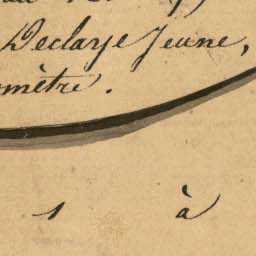 Declarje Jeune,
omètre.
1 à